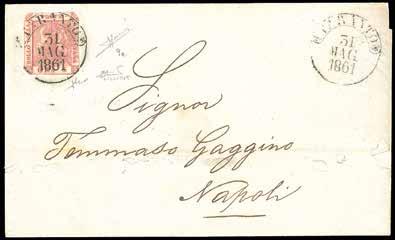 31
MAG
1861
31
MAG.
1861
Signor
Tommaso Gaggino
Napoli